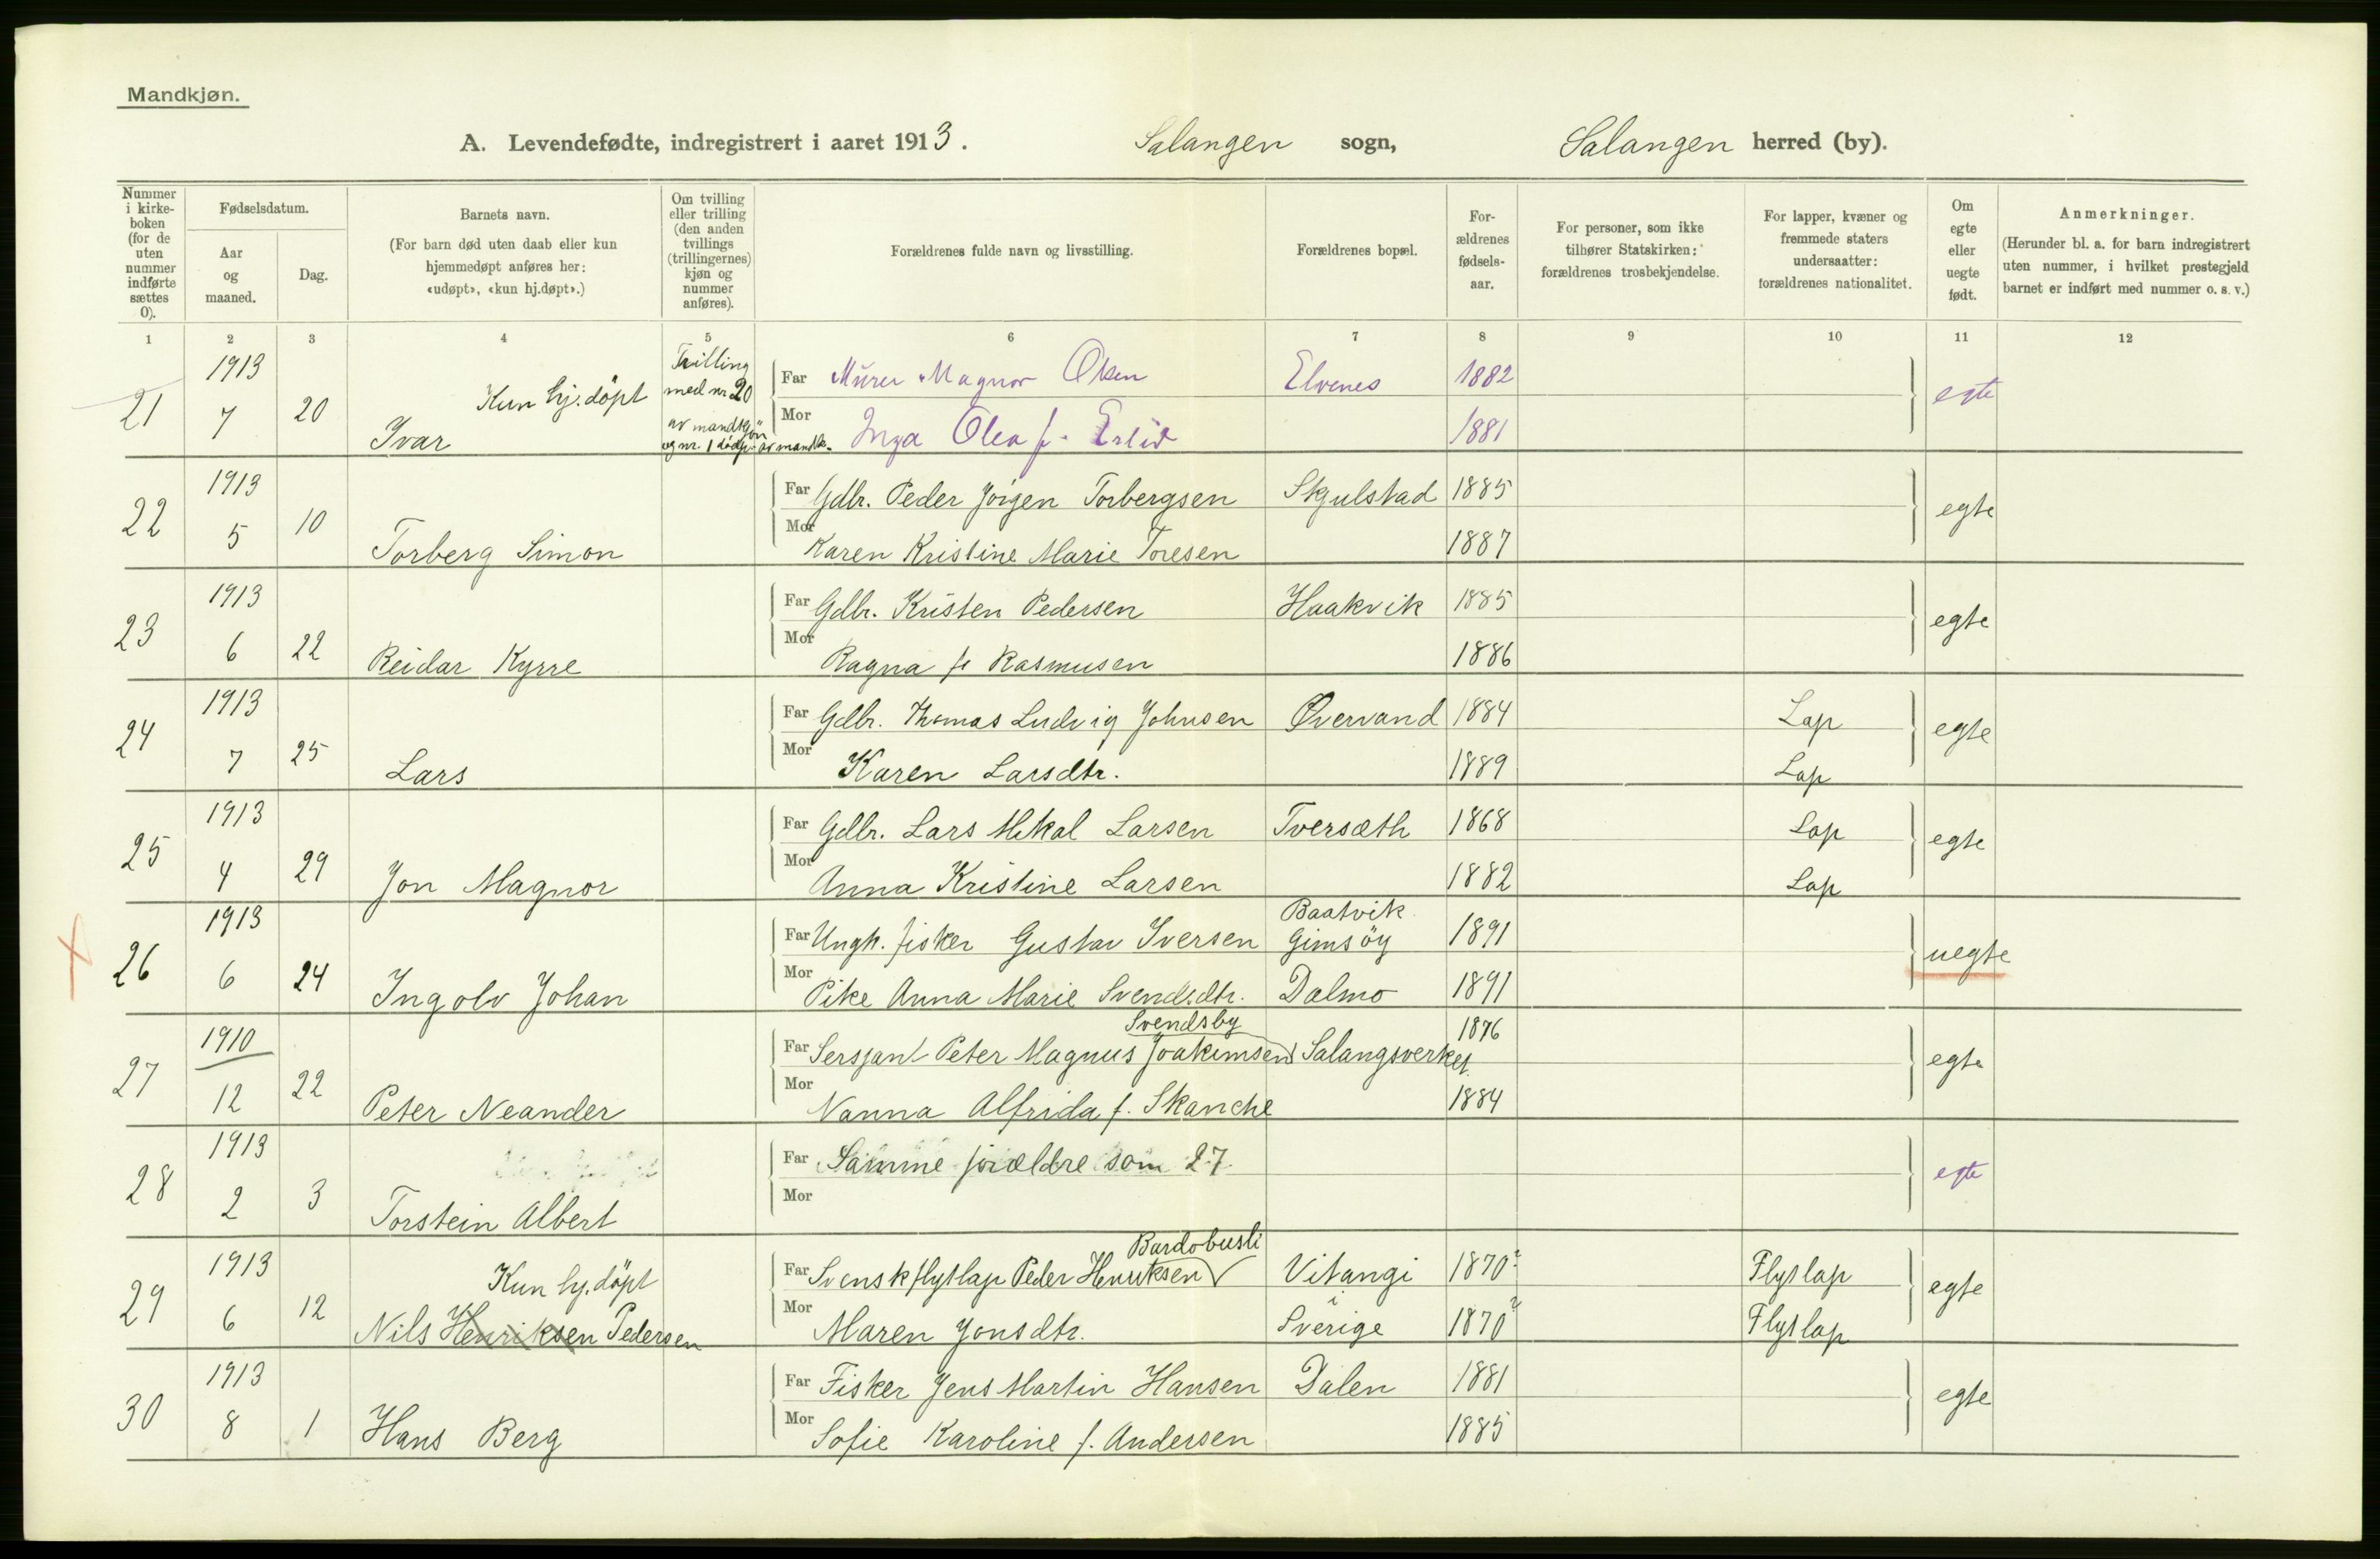 Mandkjøn.
A. Levendefødte, indregistrert i aaret 1913. Salangen sogn, Salangen herred (by).
Nummer i kirke-boken (for de uten nummer indførte sættes 0).
Fødselsdatum.
Aar og maaned.
Dag.
Barnets navn.
(For barn død uten daab eller kun hjemmedøpt anføres her: «udøpt», «kun hj.døpt».)
Om tvilling eller trilling (den anden tvillings (trillingernes) kjøn og nummer anføres).
Forældrenes fulde navn og livsstilling.
Forældrenes bopæl.
For-ældrenes fødsels-aar.
For personer, som ikke tilhører Statskirken: forældrenes trosbekjendelse.
For lapper, kvæner og fremmede staters undersaatter: forældrenes nationalitet.
Om egte eller uegte født.
Anmerkninger.
(Herunder bl. a. for barn indregistrert uten nummer, i hvilket prestegjeld barnet er indført med nummer o. s. v.)
1 2 3 4 5 6 7 8 9 10 11 12
21 1913 7 20 Kun hj.döpt Ivar
Trilling med nr 20 av mandkjön og nr. 1 dödf. av mandk.
Far Murer Magnor Olsen Elvenes 1882 egte
Mor Inga Olea f. 1881
22 1913 5 10 Torberg Simon
Far Gdbr. Peder Jörgen Torbergsen Skjulstad 1885 egte
Mor Karen Kristine Marie Toresen 1887
23 1913 6 22 Reidar Kyrre
Far Gdbr. Kristen Pedersen Haakvik 1885 egte
Mor Ragna f. Rasmusen 1886
24 1913 7 25 Lars
Far Gdbr. Thomas Ludvig Johnsen Øvervand 1884 Lap egte
Mor Karen Larsdtr. 1889 Lap
25 1913 4 29 Jon Magnor
Far Gdbr. Lars Mikal Larsen Tversæth 1868 Lap egte
Mor Anna Kristine Larsen 1882 Lap
26 1913 6 24 Ingolv Johan
Far Ungk. fisker Gustav Iversen Baatvik Gimsöy 1891 uegte
Mor Pike Anna Marie Svendsdtr. Dalmo 1891
27 1910 12 22 Peter Neander
Svendsby
Far Sersjant Peter Magnus Joakimsen Salangsverket 1876 egte
Mor Nanna Alfrida f. Skanche 1884
28 1913 2 3 Torstein Albert
Far Samme forældre som 27. egte
Mor
29 1913 6 12 Kun hj.döpt Nils Henriksen Pedersen
Bardobusti
Far Svensk flytlap Peder Henriksen Vitangi 1870? Flytlap egte
Mor Maren Jonsdtr. i Sverige 1870? Flytlap
30 1913 8 1 Hans Berg
Far Fisker Jens Martin Hansen Dalen 1881 egte
Mor Sofie Karoline f. Andersen 1885